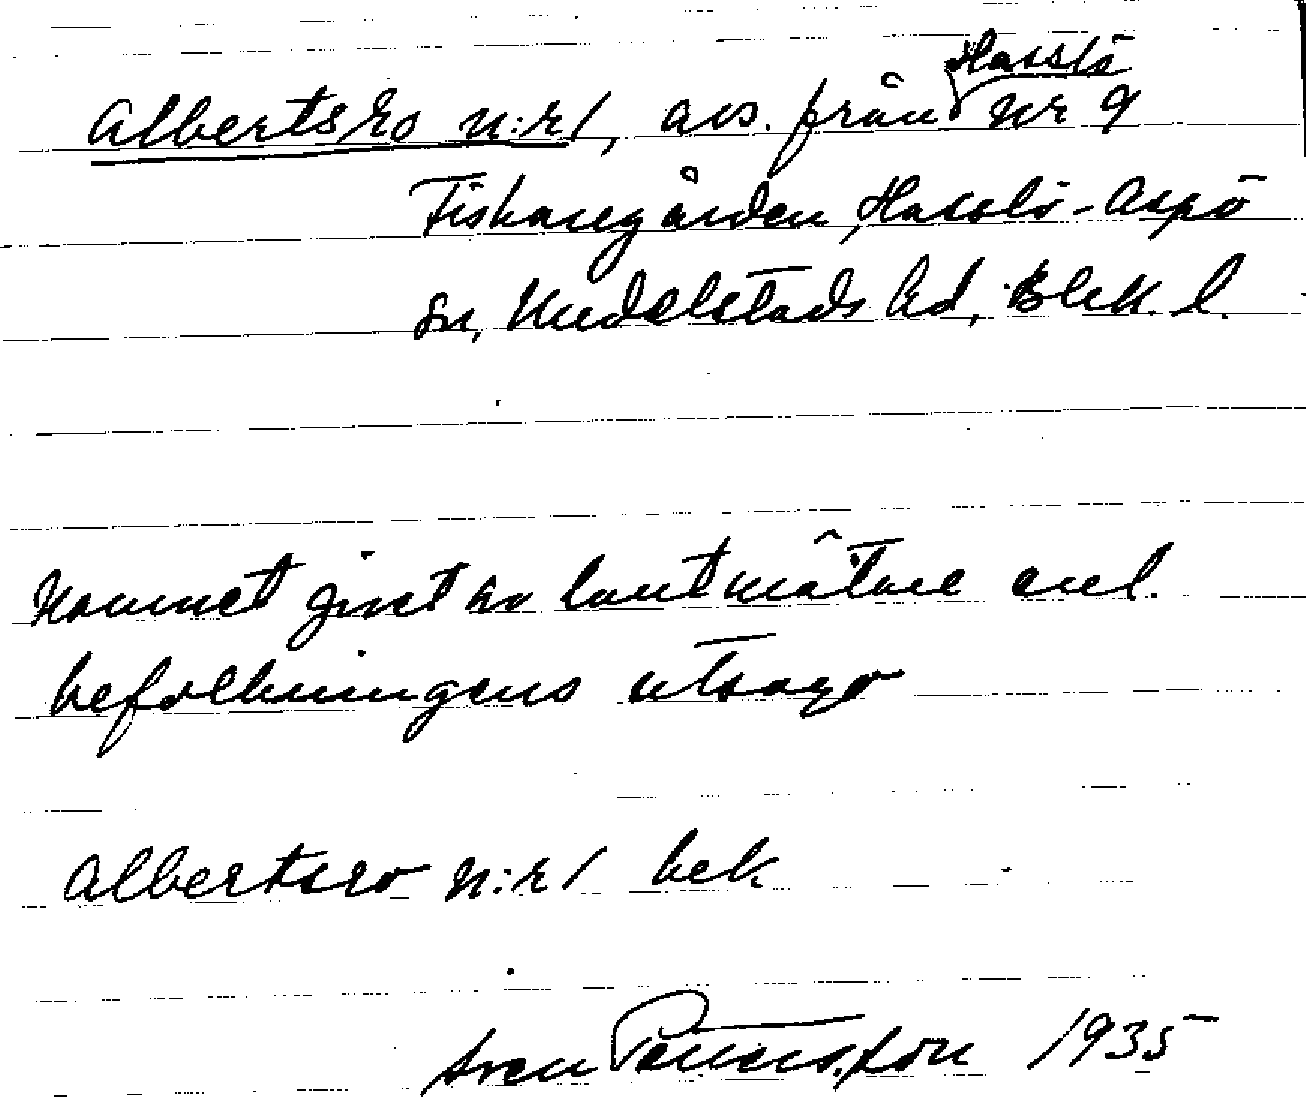 Hasslö
Albertsro n:r 1, avs. från nr 9
Fiskaregården, Hasslö-Aspö
sn, Medelstads hd, Blek. l.
Namnet givet av lantmätare enl.
befolkningens utsago
Albertsro n:r 1 bek
Sven Pettersson 1935